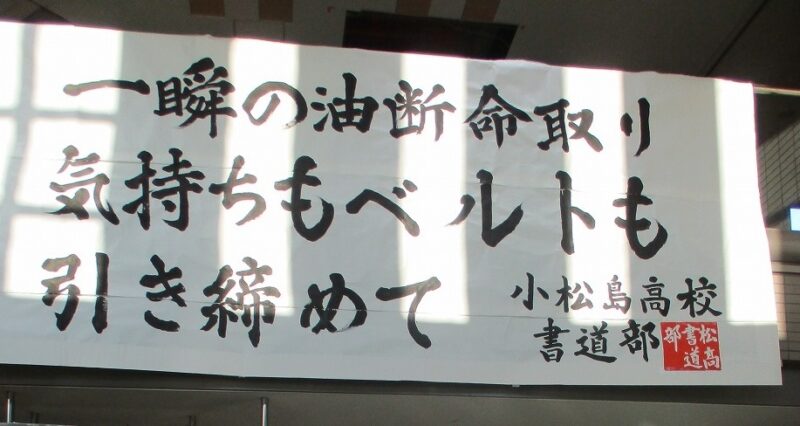 一瞬の油断命取り
気持ちもベルトも
引き締めて
小松島高校
書道部
松高
書道
部